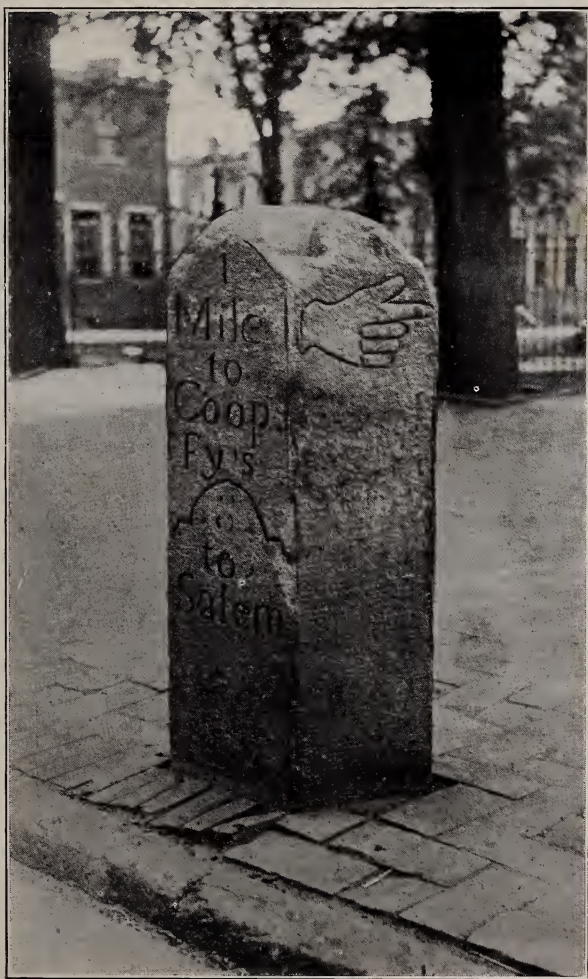 1
Mile
to
Coop
Fy's
to
Salem